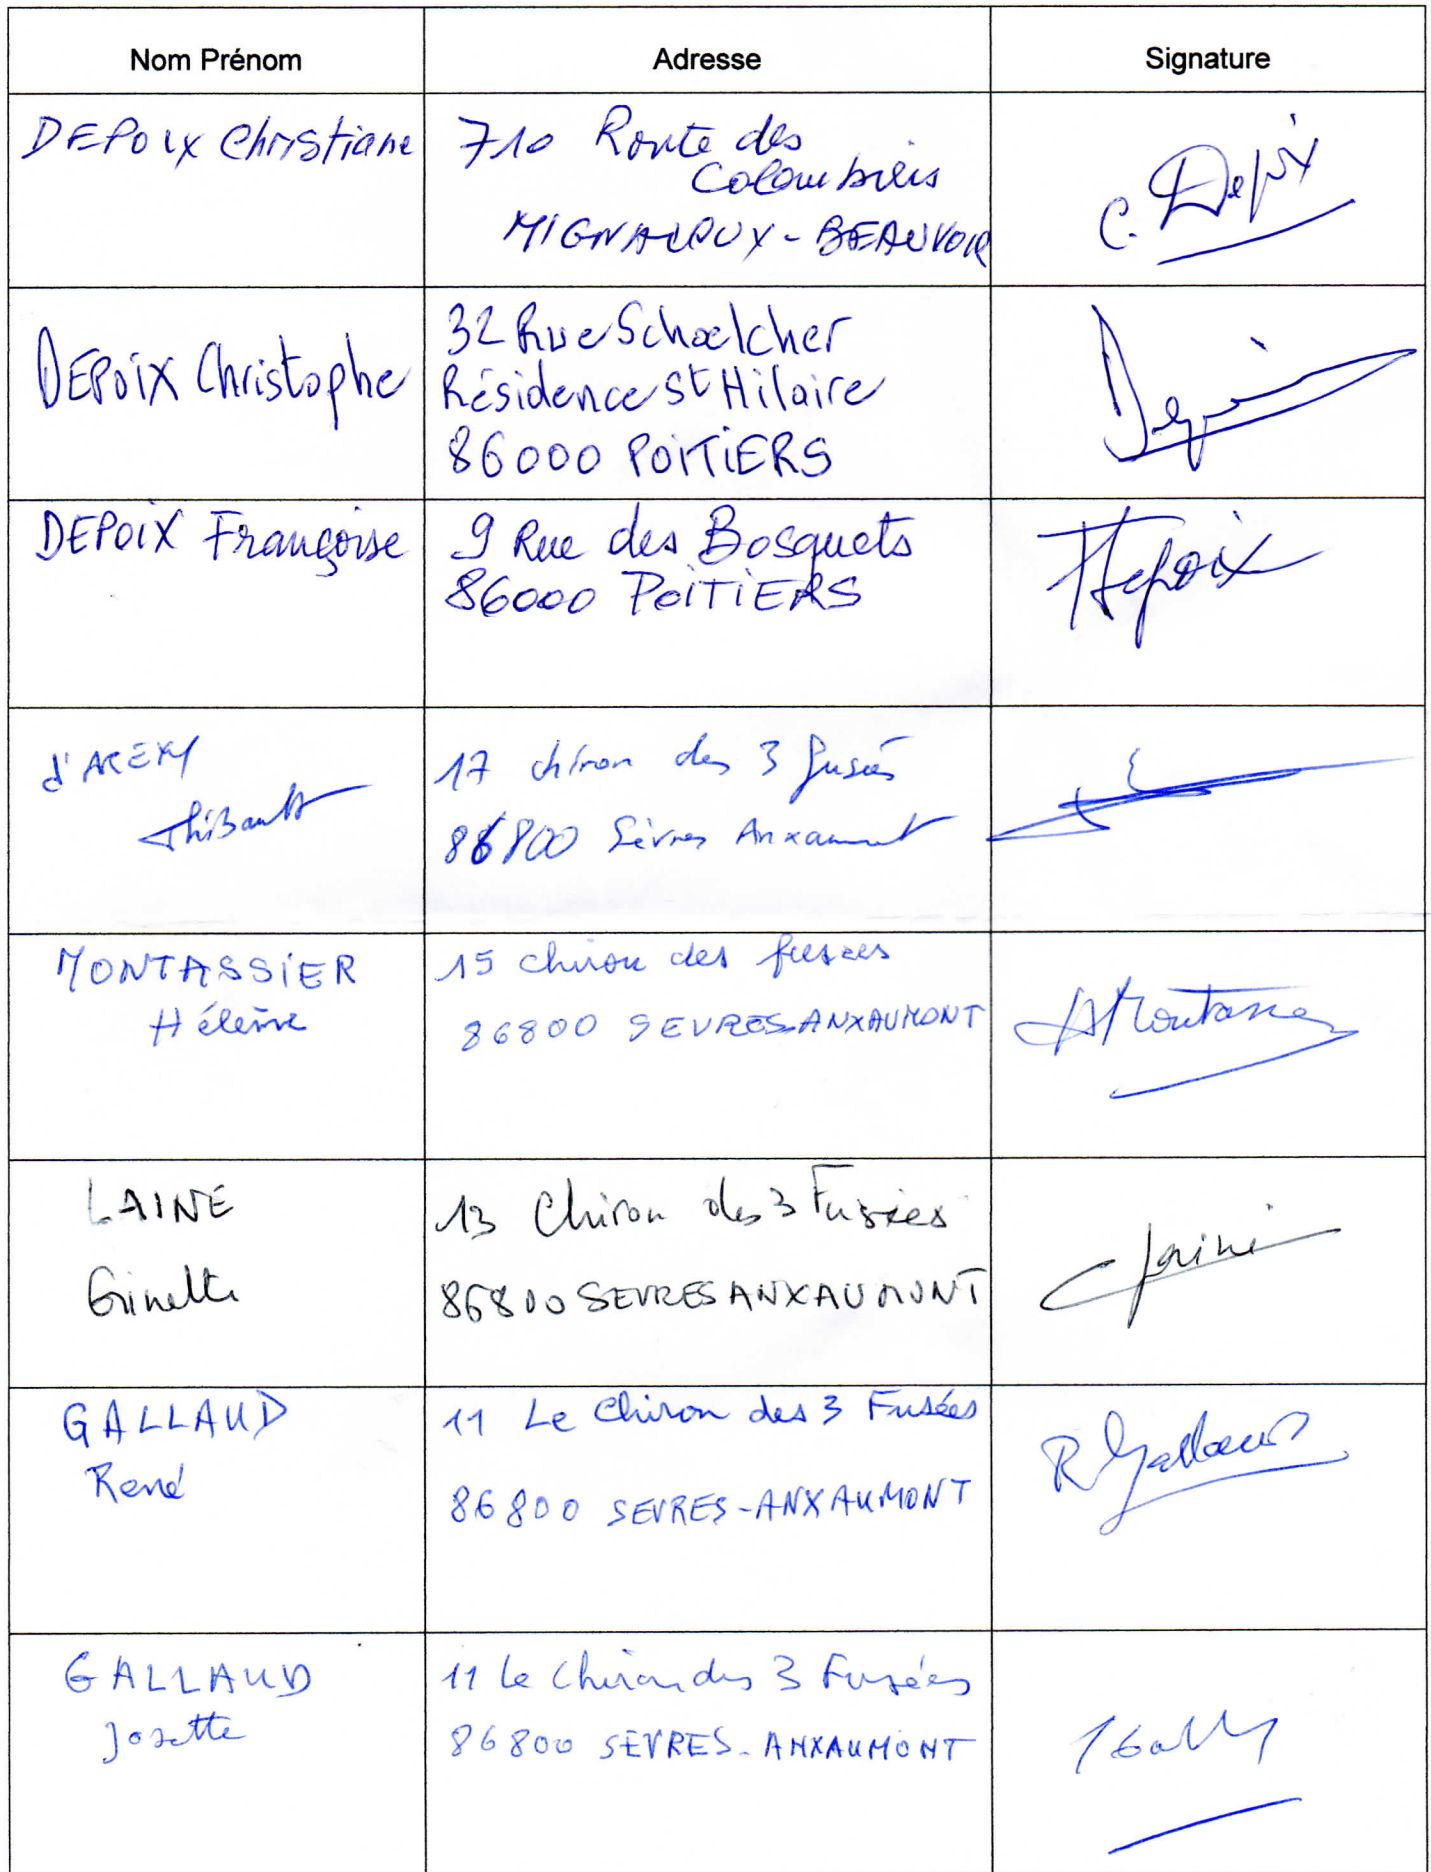 Nom Prénom Adresse Signature
DEPOIX Christiane 710 Route des
Colombiers
MIGNALOUX - BEAUVOIR
C. Depoix
DEPOIX Christophe 32 Rue Schoelcher
Résidence St Hilaire
86000 POITIERS
Depoix
DEPOIX Françoise 9 Rue des Bosquets
86000 POITIERS
FDepoix
d'
Thibault
17 chiron des 3 fusées
86800 Sèvres Anxaumont
MONTASSIER
Hélène
15 chiron des fusées
86800 SEVRES ANXAUMONT
HMontassier
LAINE
Ginette
13 Chiron des 3 Fusées
86800 SEVRES ANXAUMONT
Laine
GALLAUD
René
11 Le Chiron des 3 Fusées
86800 SEVRES-ANXAUMONT
R Gallaud
GALLAUD
Josette
11 le Chiron des 3 Fusées
86800 SEVRES-ANXAUMONT